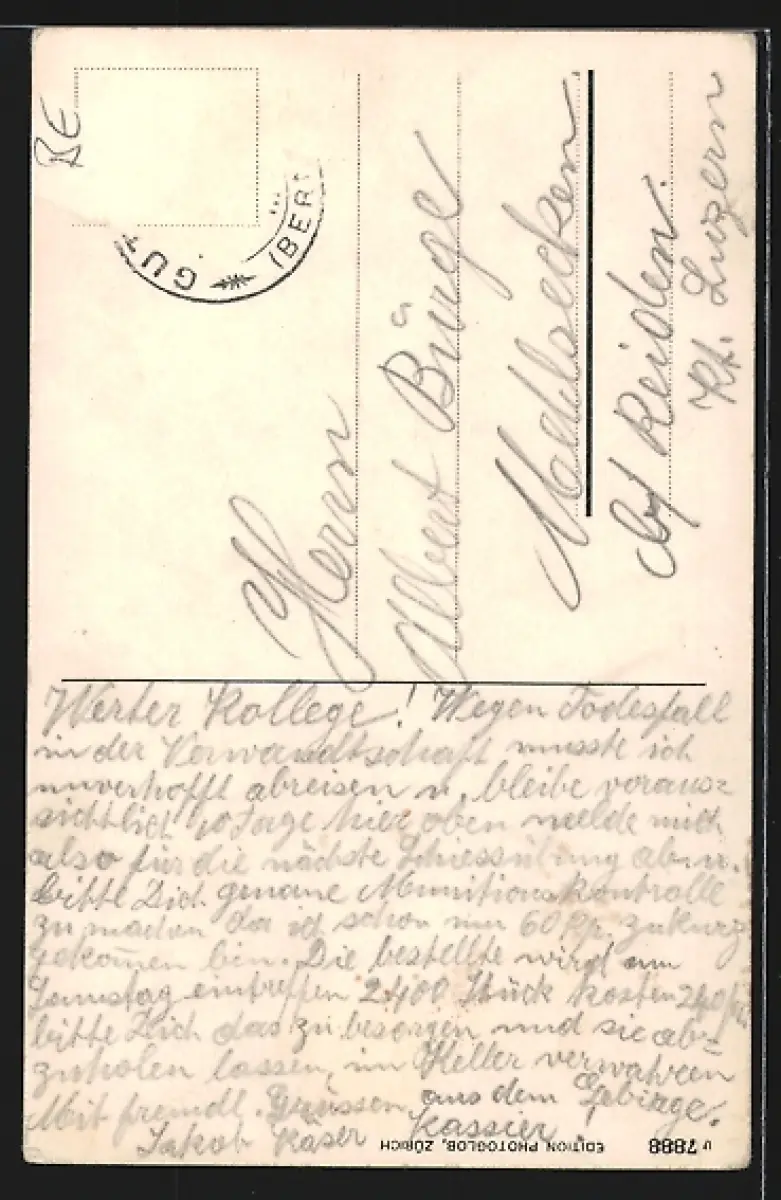 BE
GUT
(BERN
Herrn
Albert Bürge
Mehlsecken
bf Reiden.
Kt. Luzern
Werter Kollege! Wegen Todesfall
in der Verwandtschaft musste ich
unverhofft abreisen u. bleibe voraus=
sichtlich 10 Tage hier oben melde mich
also für die nächste Schiessübung ab u.
bitte Dich genaue Munitionskontrolle
zu machen da ich schon um 60 Rp. zukurz
gekomen bin. Die bestellte wird am
Samstag eintreffen 2400 Stück kosten 240 fr.
bitte Dich das zu besorgen und sie ab=
zuholen lassen, im Keller verwahren
Mit freundl. Grüssen aus dem Gebirge.
Jakob Käser Kassier!
EDITION PHOTOGLOB, ZÜRICH
7888